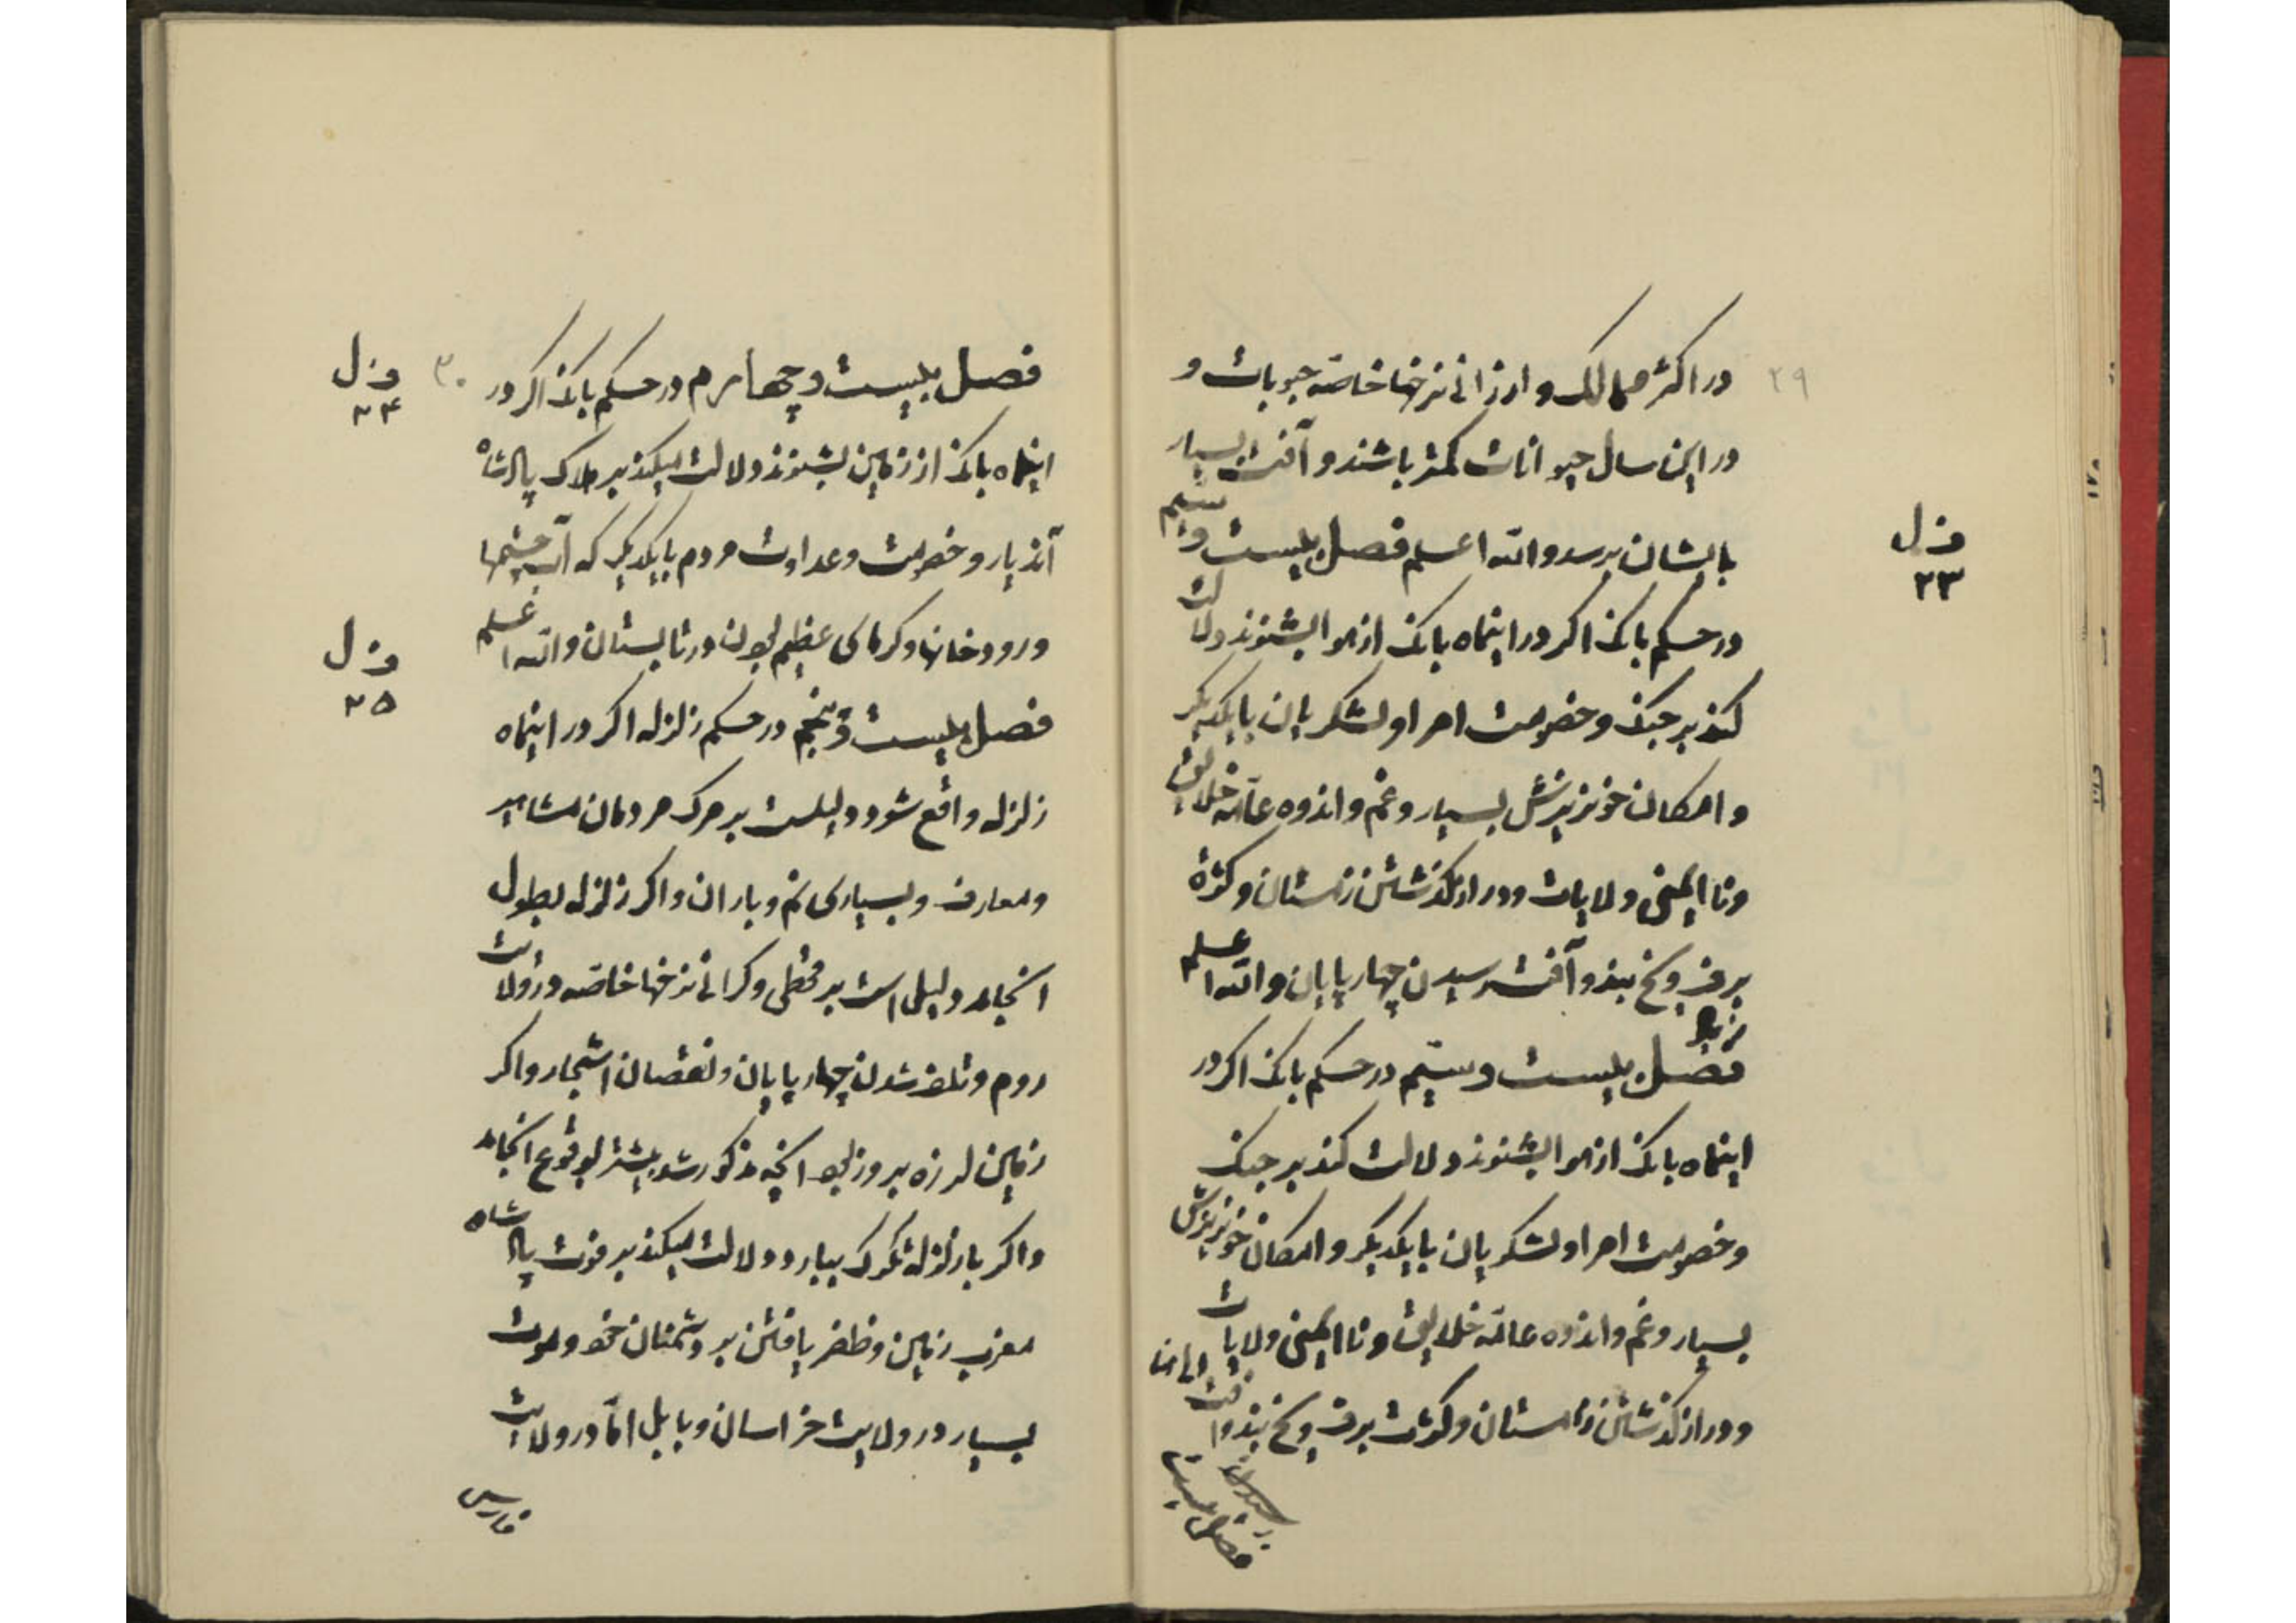 ۲۹
در اکثر ممالک و ارزانی نرخها خاصه حبوبات و
در این سال حیوانات کمتر باشند و آفت بسیار
بایشان برسد والله اعلم فصل بیست و سیم
ف ل
۲۳
در حکم بانک اگر در اینماه بانک از هوا بشنوند دلالت
کند بر جنگ و خصومت امرا و لشکریان با یکدیگر
و امکان خونریزش بسیار و غم و اندوه عامه خلایق
و ناایمنی ولایات و دراز گذشتن زمستان و کثرة
برف و یخ بند و آفت رسیدن چهارپایان والله اعلم
فصل بیست و سیم در حکم بانک اگر در
اینماه بانک از هوا بشنوند دلالت کند بر جنگ
و خصومت امرا و لشکریان با یکدیگر و امکان خونریزش
بسیار و غم و اندوه عامه خلایق و ناایمنی ولایات
و دراز گذشتن زمستان و کثرت برف و یخ بند و آفت
فصل بیست
۳۰
فصل بیست و چهارم در حکم بانک اگر در
ف ل
۲۴
اینماه بانک از زمین بشنوند دلالت میکند بر هلاک پادشاه
آندیار و خصومت و عداوت مردم با یکدیگر که آب چشمها
و رودخانها و گرمای عظیم بودن در تابستان والله اعلم
ف ل
۲۵
فصل بیست و پنجم در حکم زلزله اگر در اینماه
زلزله واقع شود دلیلست بر مرگ مردمان مشاهیر
و معارف و بسیاری نم و باران و اگر زلزله بطول
انجامد دلیل است بر قحطی و گرانی نرخها خاصه در ولایت
روم و تلف شدن چهارپایان و نقصان اشجار و اگر
زمین لرزه بروز بود آنچه مذکور شد بیشتر بوقوع انجامد
و اگر با زلزله تگرگ ببارد دلالت میکند بر فوت پادشاه
مغرب زمین و ظفر یافتن بر دشمنان خود و موت
بسیار در ولایت خراسان و بابل اما در ولایت
فارس